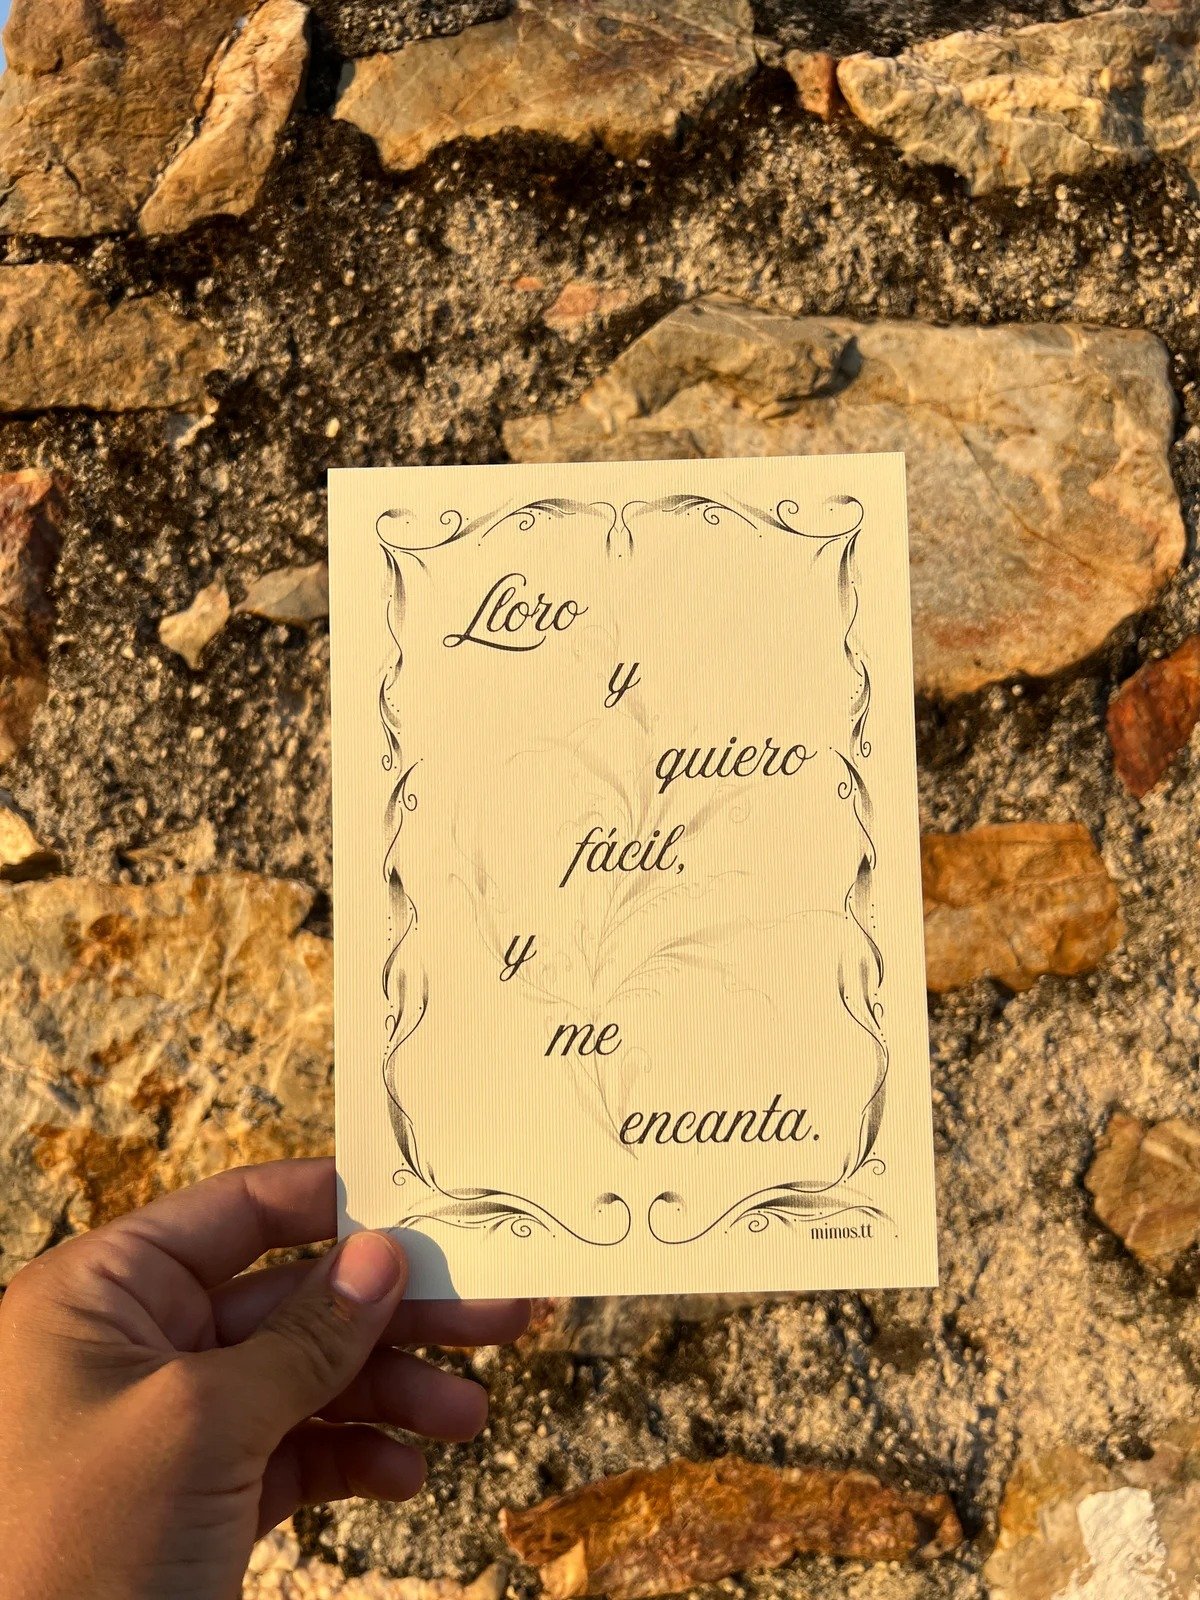 Lloro
y
quiero
fácil,
y
me
encanta.
mimos.tt